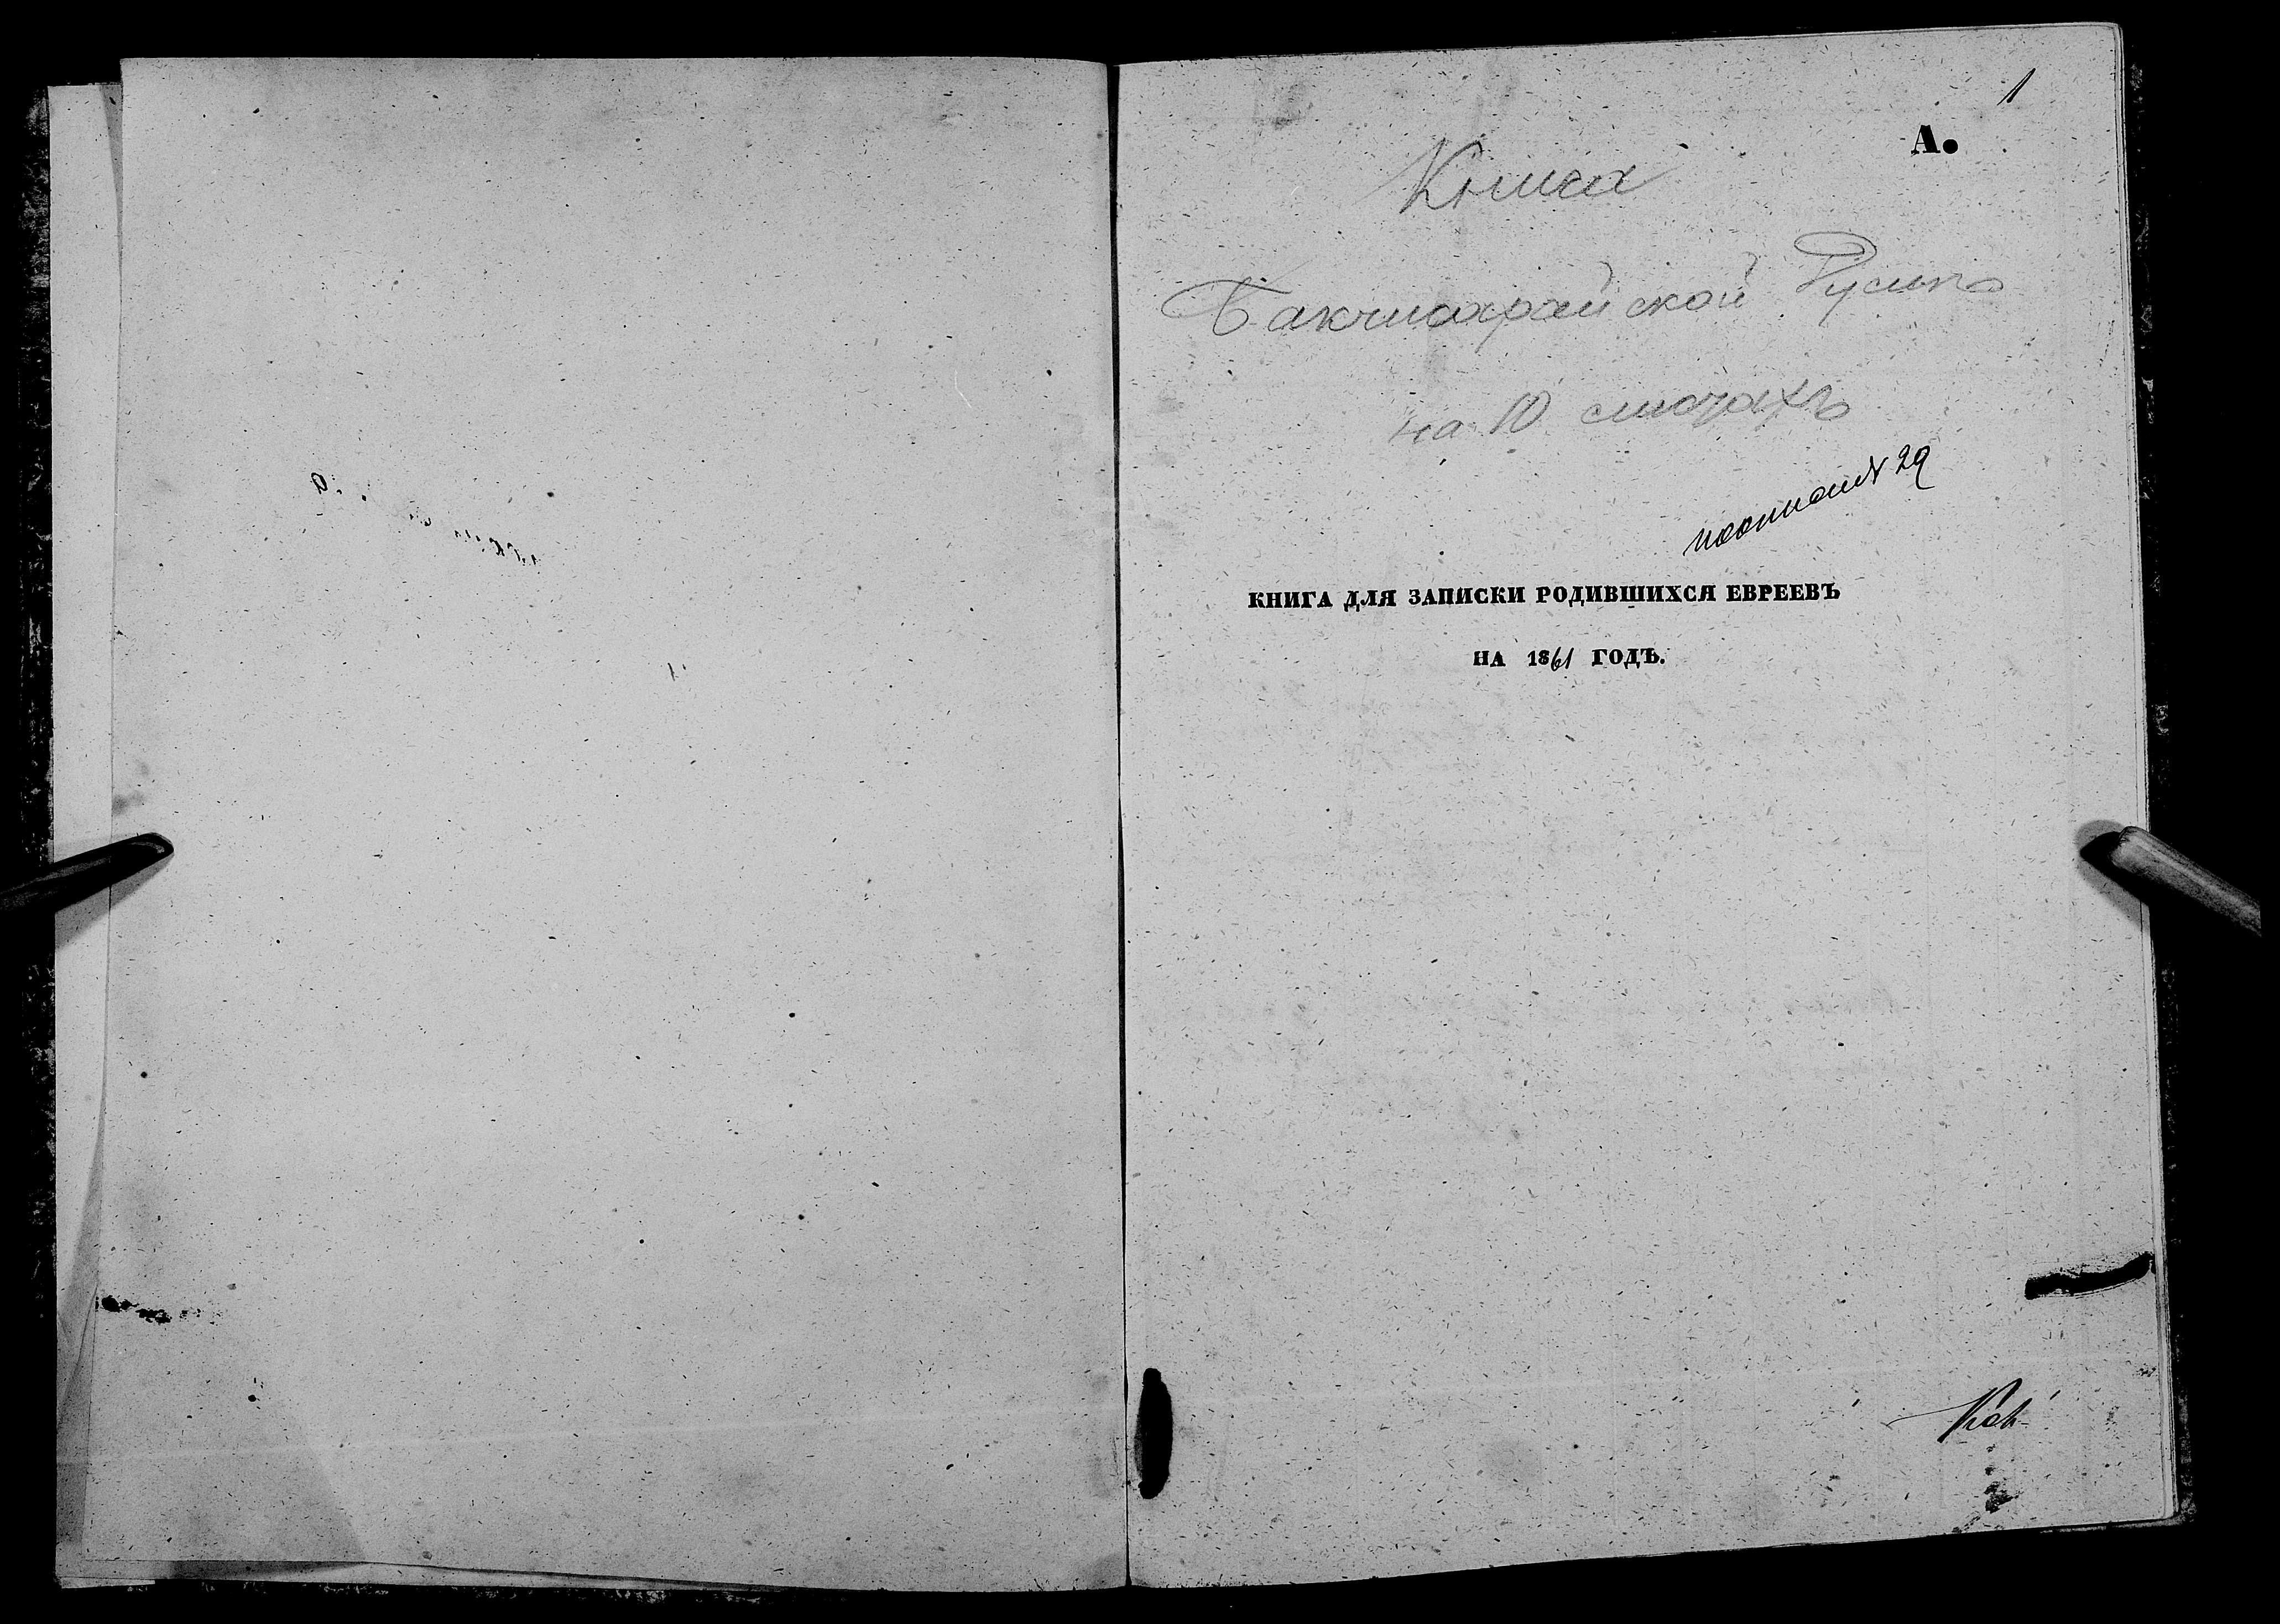 1
А.
Книга
Бакчисарайской
на 10 листахъ
29
КНИГА ДЛЯ ЗАПИСКИ РОДИВШИХСЯ ЕВРЕЕВЪ
НА 1861 ГОДЪ.